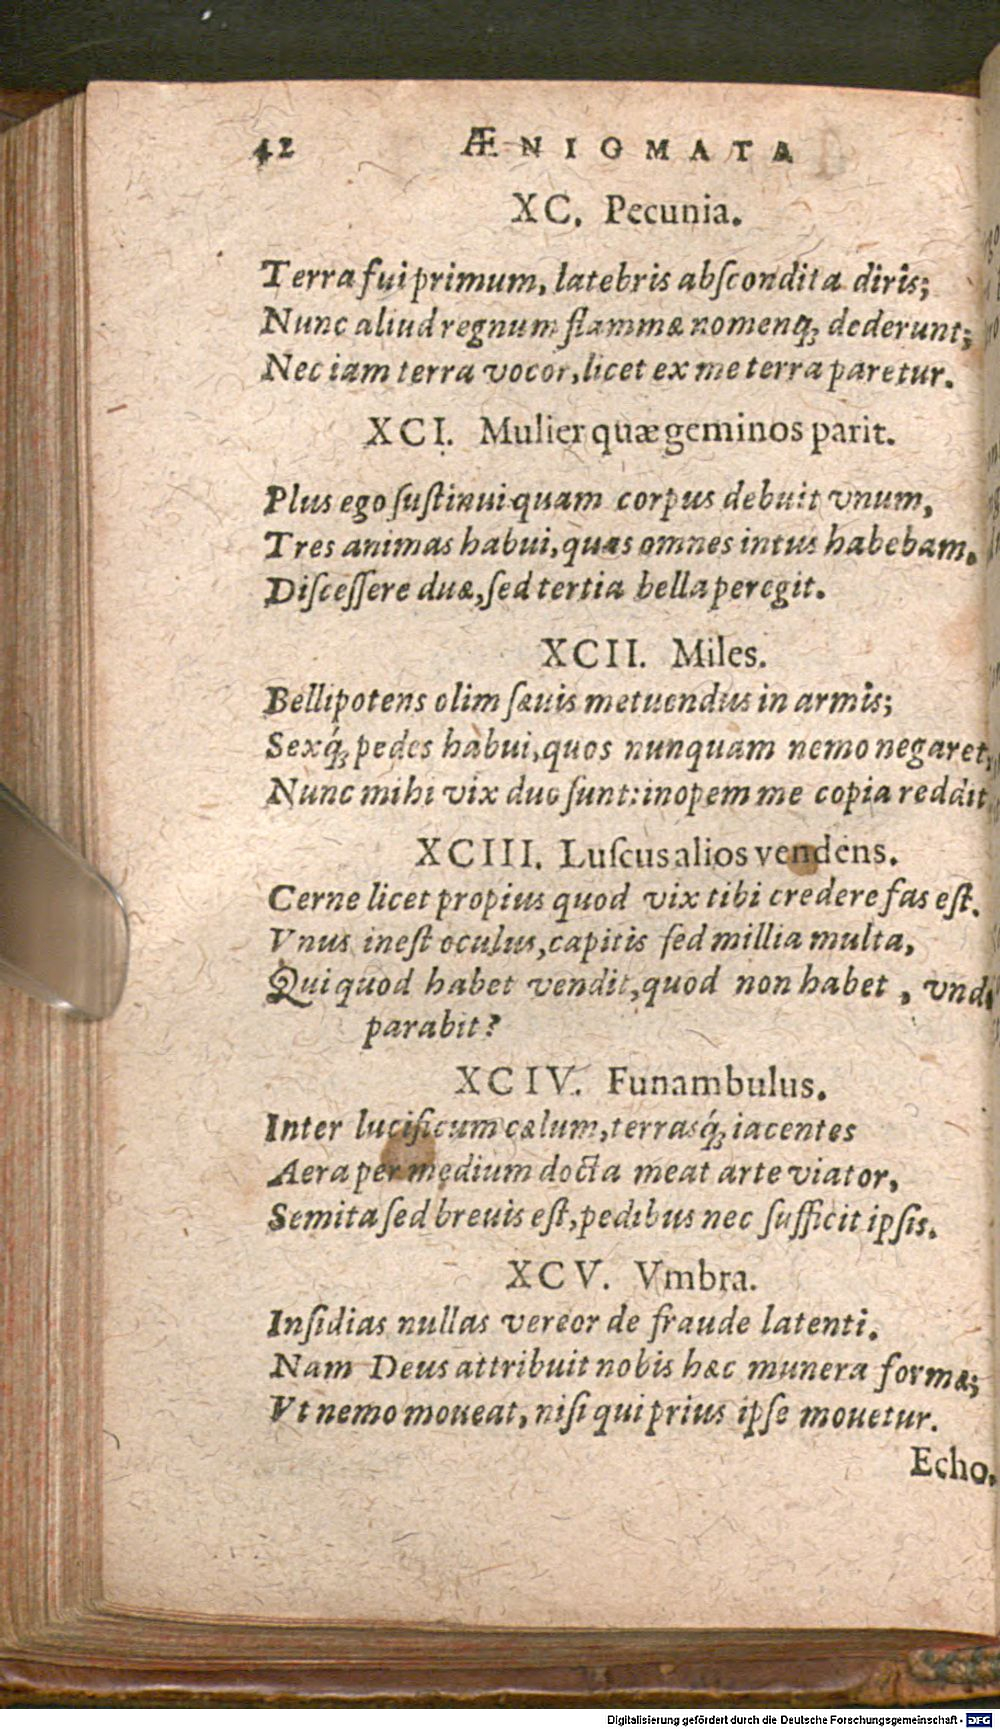 42 ÆNIGMATA
XC. Pecunia.
Terra fui primum, latebris abſcondita diris;
Nunc aliud regnum flammæ nomenq́; dederunt;
Nec iam terra vocor, licet ex me terra paretur.
XCI. Mulier quæ geminos parit.
Plus ego ſuſtinui quam corpus debuit vnum,
Tres animas habui, quas omnes intus habebam.
Diſceſſere duæ, ſed tertia bella peregit.
XCII. Miles.
Bellipotens olim ſæuis metuendus in armis;
Sexq́; pedes habui, quos nunquam nemo negaret,
Nunc mihi vix duo ſunt: inopem me copia reddit
XCIII. Luſcus alios vendens.
Cerne licet propius quod vix tibi credere fas eſt.
Vnus ineſt oculus, capitis ſed millia multa,
Qui quod habet vendit, quod non habet,
parabit?
XCIV. Funambulus.
Inter lucificum cælum, terrasq́; iacentes
Aera per medium docta meat arte viator,
Semita ſed breuis eſt, pedibus nec ſufficit ipſis.
XCV. Vmbra.
Inſidias nullas vereor de fraude latenti.
Nam Deus attribuit nobis hæc munera formæ;
Vt nemo moueat, niſi qui prius ipſe mouetur.
Echo.
Digitalisierung gefördert durch die Deutsche Forschungsgemeinschaft - DFG